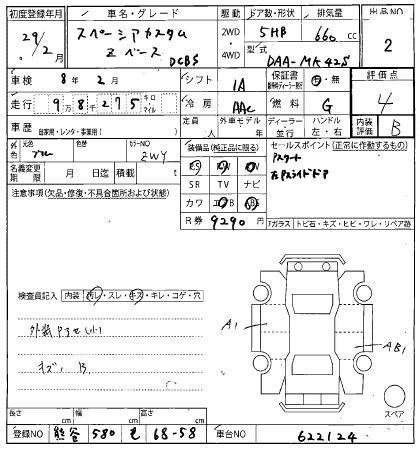 初度登録年月 車名・グレード 駆動 ドア数・形状 排気量 出品NO
29/2 スペーシアカスタム 2WD 5HB 660 cc 2
Zベース DCBS 4WD 型式 DAA-MK42S
車検 8年 2月 シフト IA 保証書 有・無 評価点
走行 9万8千275 キロ マイル 冷房 AAC 燃料 G 4
車歴 自家用・レンタ・事業用( ) 定員 人 外車モデル 年 ディーラー 並行 ハンドル 左・右 内装評価 B
元色 ブルー 色替 カラーNO ZWY 装備品(純正品に限る) セールスポイント(正常に作動するもの)
名義変更期限 月 日迄 積載 t PS PW AW Pスタート
注意事項(欠品・修復・不具合箇所および状態) SR TV ナビ 左Pスライドドア
カワ エアB ABS
R券 9290円 Fガラス トビ石・キズ・ヒビ・ワレ・リペア跡
検査員記入 内装 汚レ・スレ・キズ・キレ・コゲ・穴
A1
AB1
外装
キズ B
スペア
長さ cm 幅 cm 高さ cm
登録NO 熊谷 580 68-58 車台NO 622124